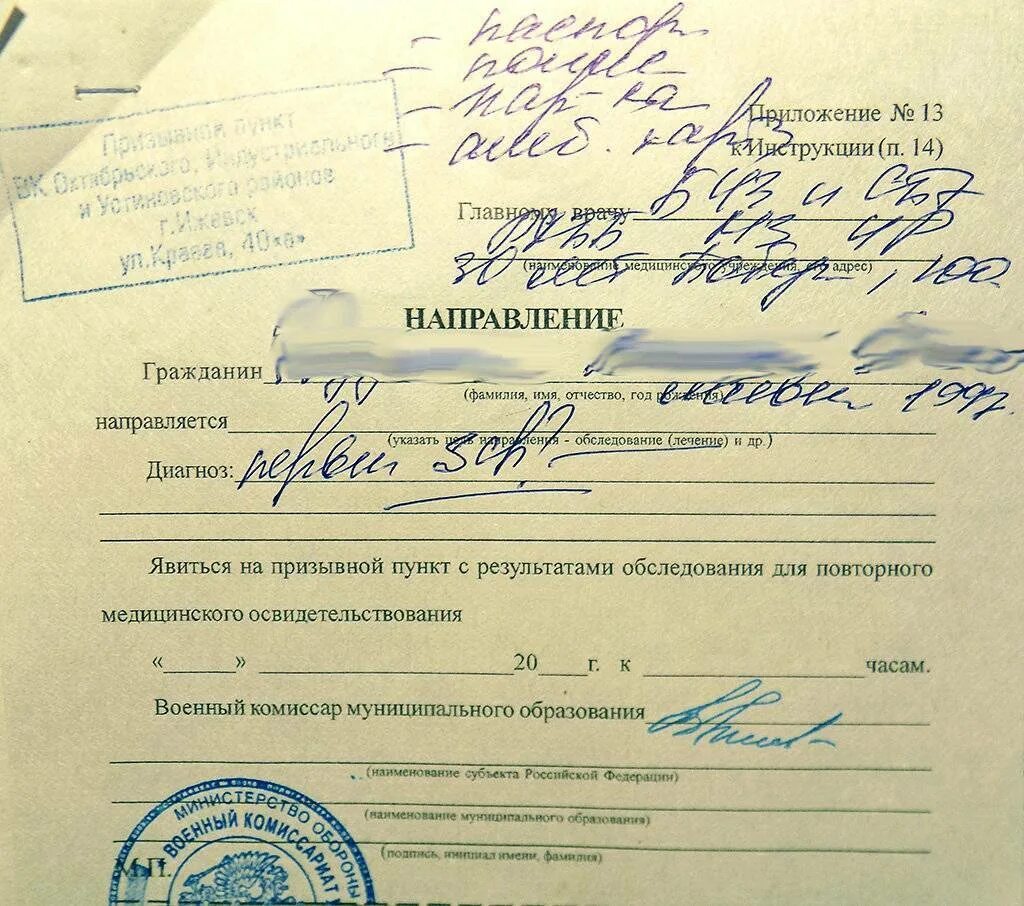 - паспорт
- полис
- нар-ка
- амб. карта
Призывной пункт
ВК Октябрьского, Индустриального
и Устиновского районов
г.Ижевск
ул.Краева, 40«а»
Приложение № 13
к Инструкции (п. 14)
Главному врачу БУЗ и СПЭ
РКВБ МЗ УР
(наименование медицинского учреждения, его адрес)
30 лет Победы, 100
НАПРАВЛЕНИЕ
Гражданин
(фамилия, имя, отчество, год рождения) 1997.
направляется
(указать цель направления - обследование (лечение) и др.)
Диагноз:
Явиться на призывной пункт с результатами обследования для повторного
медицинского освидетельствования
«____» ____ 20__г. к ____ часам.
Военный комиссар муниципального образования
(наименование субъекта Российской Федерации)
(наименование муниципального образования)
(подпись, инициал имени, фамилия)
М.П.
МИНИСТЕРСТВО ОБОРОНЫ
ВОЕННЫЙ КОМИССАРИАТ